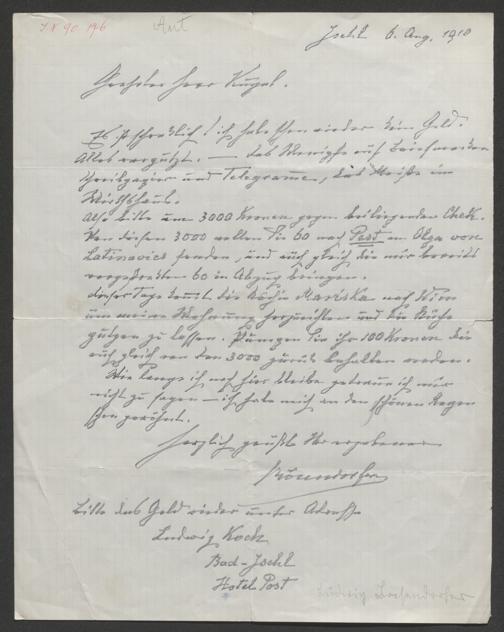 I.N. 90.196
Art
Ischl 6. Aug. 1910
Geehrter Herr Kugel.
Es ist schrecklich! ich habe schon wieder kein Geld.
Alles verputzt. — das Wenigste auf Briefmarken
Schreibpapier und Telegramme, das Meiste im
Wirtshaus.
Also bitte um 3000 Kronen gegen beiliegenden Chek.
Von diesen 3000 wollen Sie 60 nach Pest an Olga von
Latinovics senden, und auch gleich die mir bereits
vorgestreckten 60 in Abzug bringen.
dieser Tage kommt die Köchin Mariska nach Wien
um meine Wohnung herzurichten und die Küche
putzen zu lassen. Sie ihr 100 Kronen die
auch gleich von den 3000 zurück behalten werden.
Wie lange ich noch hier bleibe getraue ich mir
nicht zu sagen — ich habe mich an den schönen Regen
schon gewöhnt.
Herzlich grüßt Ihr ergebener
Bösendorfer
Bitte das Geld wieder unter Adresse
Ludwig Koch
Bad-Ischl
Hotel Post
Ludwig Bösendorfer